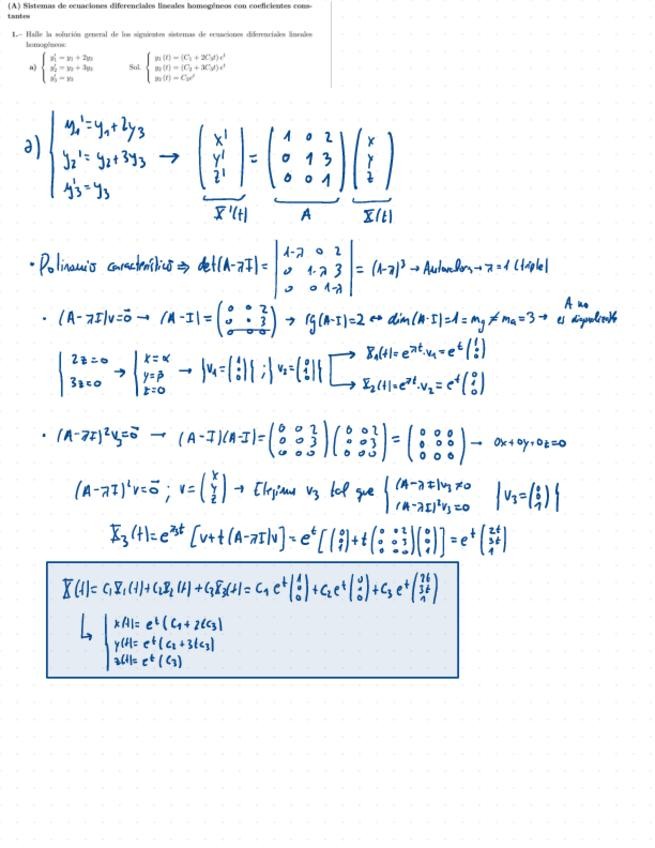 (A) Sistemas de ecuaciones diferenciales lineales homogéneos con coeficientes cons-
tantes
1.- Halle la solución general de los siguientes sistemas de ecuaciones diferenciales lineales
homogéneos:
a) { y₁' = y₁ + 2y₃   Sol. { y₁(t) = (C₁ + 2C₃t) eᵗ
y₂' = y₂ + 3y₃   y₂(t) = (C₂ + 3C₃t) eᵗ
y₃' = y₃   y₃(t) = C₃eᵗ
a) { y₁' = y₁ + 2y₃
y₂' = y₂ + 3y₃ → (x' y' z') = (1 0 2; 0 1 3; 0 0 1) (x y z)
y₃' = y₃
X'(t) A X(t)
• Polinomio característico ⇒ det(A-λI) = |1-λ 0 2; 0 1-λ 3; 0 0 1-λ| = (1-λ)³ → Autovalores → λ=1 (triple)
• (A-λI)v=0⃗ → (A-I) = (0 0 2; 0 0 3; 0 0 0) → rg(A-I)= ↔ dim(A-I)= = mg ≠ ma=3 → A no es
{ 2z=0 → { x=α → {v₁=(1 0 0)}; {v₂=(0 1 0)} → X₁(t)=e^λt·v₁=eᵗ(1 0 0)
3z=0   y=β   → X₂(t)=e^λt·v₂=eᵗ(0 1 0)
z=0
• (A-λI)²v₃=0⃗ → (A-I)(A-I) = (0 0 2; 0 0 3; 0 0 0) (0 0 2; 0 0 3; 0 0 0) = (0 0 0; 0 0 0; 0 0 0) → 0x+0y+0z=0
(A-λI)²v=0⃗ ; v=(x y z) → Elegimos v₃ tal que { (A-λI)v₃≠0   {v₃=(0 0 1)}
(A-λI)²v₃=0
X₃(t)=e^λt [v+t(A-λI)v]=eᵗ[(0 0 1)+t(0 0 2; 0 0 3; 0 0 0)(0 0 1)]=eᵗ(2t 3t 1)
X(t)= C₁X₁(t)+C₂X₂(t)+C₃X₃(t)= C₁ eᵗ(1 0 0)+C₂ eᵗ(0 1 0)+C₃ eᵗ(2t 3t 1)
↳ { x(t)= eᵗ(C₁+2tC₃)
y(t)= eᵗ(C₂+3tC₃)
z(t)= eᵗ(C₃)